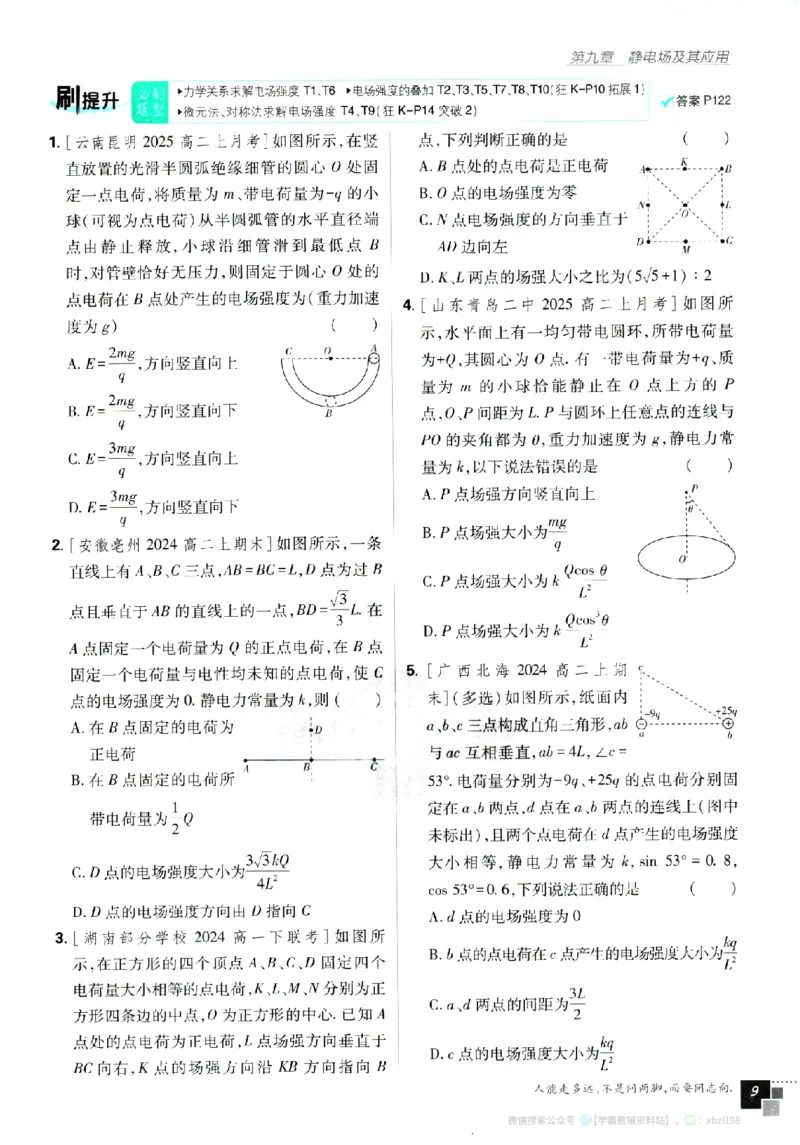 第九章 静电场及其应用
刷提升 必刷题型 ▶力学关系求解电场强度 T1、T6 ▶电场强度的叠加 T2、T3、T5、T7、T8、T10(狂 K-P10 拓展1)
▶微元法、对称法求解电场强度 T4、T9(狂 K-P14 突破2)
答案 P122
1. [云南昆明 2025 高二上月考]如图所示,在竖
直放置的光滑半圆弧绝缘细管的圆心 O 处固
定一点电荷,将质量为 m、带电荷量为-q 的小
球(可视为点电荷)从半圆弧管的水平直径端
点由静止释放,小球沿细管滑到最低点 B
时,对管壁恰好无压力,则固定于圆心 O 处的
点电荷在 B 点处产生的电场强度为(重力加速
度为 g) ( )
A. E=2mg/q,方向竖直向上
B. E=2mg/q,方向竖直向下
C. E=3mg/q,方向竖直向上
D. E=3mg/q,方向竖直向下
C O A
B
2. [安徽亳州 2024 高二上期末]如图所示,一条
直线上有 A、B、C 三点,AB=BC=L,D 点为过 B
点且垂直于 AB 的直线上的一点,BD=√3/3 L. 在
A 点固定一个电荷量为 Q 的正点电荷,在 B 点
固定一个电荷量与电性均未知的点电荷,使 C
点的电场强度为 0. 静电力常量为 k,则 ( )
A. 在 B 点固定的电荷为
正电荷
B. 在 B 点固定的电荷所
带电荷量为 1/2 Q
C. D 点的电场强度大小为 3√3kQ/4L²
D. D 点的电场强度方向由 D 指向 C
D
A B C
3. [湖南部分学校 2024 高一下联考]如图所
示,在正方形的四个顶点 A、B、C、D 固定四个
电荷量大小相等的点电荷,K、L、M、N 分别为正
方形四条边的中点,O 为正方形的中心. 已知 A
点处的点电荷为正电荷,L 点场强方向垂直于
BC 向右,K 点的场强方向沿 KB 方向指向 B
点,下列判断正确的是 ( )
A. B 点处的点电荷是正电荷
B. O 点的电场强度为零
C. N 点电场强度的方向垂直于
AD 边向左
D. K、L 两点的场强大小之比为(5√5+1) : 2
A K B
N O L
D M C
4. [山东青岛二中 2025 高二上月考]如图所
示,水平面上有一均匀带电圆环,所带电荷量
为+Q,其圆心为 O 点. 有一带电荷量为+q、质
量为 m 的小球恰能静止在 O 点上方的 P
点,O、P 间距为 L. P 与圆环上任意点的连线与
PO 的夹角都为 θ,重力加速度为 g,静电力常
量为 k,以下说法错误的是 ( )
A. P 点场强方向竖直向上
B. P 点场强大小为 mg/q
C. P 点场强大小为 k Qcos θ/L²
D. P 点场强大小为 k Qcos³θ/L²
P
θ
O
5. [广西北海 2024 高二上期
末](多选)如图所示,纸面内
a、b、c 三点构成直角三角形,ab
与 ac 互相垂直,ab=4L,∠c=
53°. 电荷量分别为-9q、+25q 的点电荷分别固
定在 a、b 两点,d 点在 a、b 两点的连线上(图中
未标出),且两个点电荷在 d 点产生的电场强度
大小相等,静电力常量为 k,sin 53°=0. 8,
cos 53°=0. 6,下列说法正确的是 ( )
A. d 点的电场强度为 0
B. b 点的点电荷在 c 点产生的电场强度大小为 kq/L²
C. a、d 两点的间距为 3L/2
D. c 点的电场强度大小为 kq/L²
c
-9q +25q
a b
人能走多远,不是问两脚,而要问志向.
9
微信搜索公众号 【学霸教辅资料站】, : xbzl198